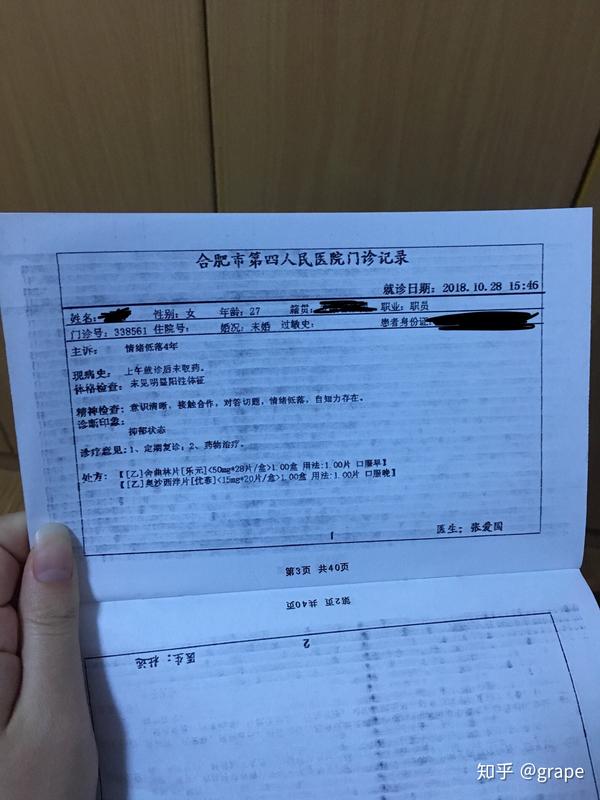 合肥市第四人民医院门诊记录
就诊日期：2018.10.28 15:46
姓名： 性别：女 年龄：27 籍贯： 职业：职员
门诊号：338561 住院号： 婚况：未婚 过敏史： 患者身份证：
主诉： 情绪低落4年
现病史： 上午就诊后未取药。
体格检查：未见明显阳性体征
精神检查：意识清晰，接触合作，对答切题，情绪低落，自知力存在。
诊断印象：
抑郁状态
诊疗意见：1、定期复诊；2、药物治疗。
处方： 【[乙]舍曲林片[乐元]<50mg*28片/盒>1.00盒 用法：1.00片 口服早】
【[乙]奥沙西泮片[优菲]<15mg*20片/盒>1.00盒 用法：1.00片 口服晚】
1
医生：张爱国
第3页 共40页
第2页 共40页
2
医生：杜远
知乎 @grape